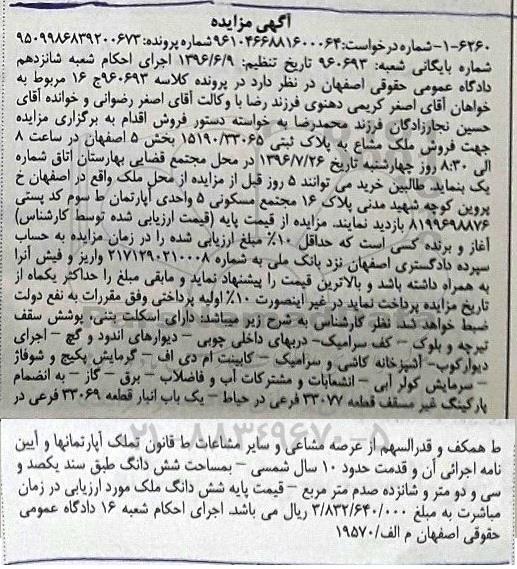 آگهی مزایده
۱-۶۲۶۰-شماره درخواست:۹۶۱۰۴۶۶۸۸۱۶۰۰۰۶۴ شماره پرونده:۹۵۰۹۹۸۶۸۳۹۲۰۰۶۷۳
شماره بایگانی شعبه: ۹۶۰۶۹۳ تاریخ تنظیم: ۱۳۹۶/۶/۹ اجرای احکام شعبه شانزدهم
دادگاه عمومی حقوقی اصفهان در نظر دارد در پرونده کلاسه ۹۶۰۶۹۳ج ۱۶ مربوط به
خواهان آقای اصغر کریمی دهنوی فرزند رضا با وکالت آقای اصغر رضوانی و خوانده آقای
حسین نجارزادگان فرزند محمدرضا به خواسته دستور فروش اقدام به برگزاری مزایده
جهت فروش ملک مشاع به پلاک ثبتی ۱۵۱۹۰/۳۳۰۶۵ بخش ۵ اصفهان در ساعت ۸
الی ۸:۳۰ روز چهارشنبه تاریخ ۱۳۹۶/۷/۲۶ در محل مجتمع قضایی بهارستان اتاق شماره
یک بنماید. طالبین خرید می توانند ۵ روز قبل از مزایده از محل ملک واقع در اصفهان خ
پروین کوچه شهید مدنی پلاک ۱۶ مجتمع مسکونی ۵ واحدی آپارتمان ط سوم کد پستی
۸۱۹۹۶۹۸۸۷۶ بازدید نمایند. مزایده از قیمت پایه (قیمت ارزیابی شده توسط کارشناس)
آغاز و برنده کسی است که حداقل ۱۰٪ مبلغ ارزیابی شده را در زمان مزایده به حساب
سپرده دادگستری اصفهان نزد بانک ملی به شماره ۲۱۷۱۲۹۰۲۱۰۰۰۸ واریز و فیش آنرا
به همراه داشته باشد و بالاترین قیمت را پیشنهاد نماید و مابقی مبلغ را حداکثر یکماه از
تاریخ مزایده پرداخت نماید در غیر اینصورت ۱۰٪ اولیه پرداختی وفق مقررات به نفع دولت
ضبط خواهد شد. نظر کارشناس به شرح زیر میباشد: دارای اسکلت بتنی، پوشش سقف
تیرچه و بلوک – کف سرامیک- دربهای داخلی چوبی – دیوارهای اندود و گچ – اجرای
دیوارکوب- آشپزخانه کاشی و سرامیک – کابینت ام دی اف – گرمایش پکیج و شوفاژ
– سرمایش کولر آبی – انشعابات و مشترکات آب و فاضلاب – برق – گاز – به انضمام
پارکینگ غیر مسقف قطعه ۳۳۰۷۷ فرعی در حیاط – یک باب انبار قطعه ۳۳۰۶۹ فرعی در
ط همکف و قدرالسهم از عرصه مشاعی و سایر مشاعات ط قانون تملک آپارتمانها و آیین
نامه اجرائی آن و قدمت حدود ۱۰ سال شمسی – بمساحت شش دانگ طبق سند یکصد و
سی و دو متر و شانزده صدم متر مربع – قیمت پایه شش دانگ ملک مورد ارزیابی در زمان
مباشرت به مبلغ ۳/۸۳۲/۶۴۰/۰۰۰ ریال می باشد. اجرای احکام شعبه ۱۶ دادگاه عمومی
حقوقی اصفهان م الف/۱۹۵۷۰